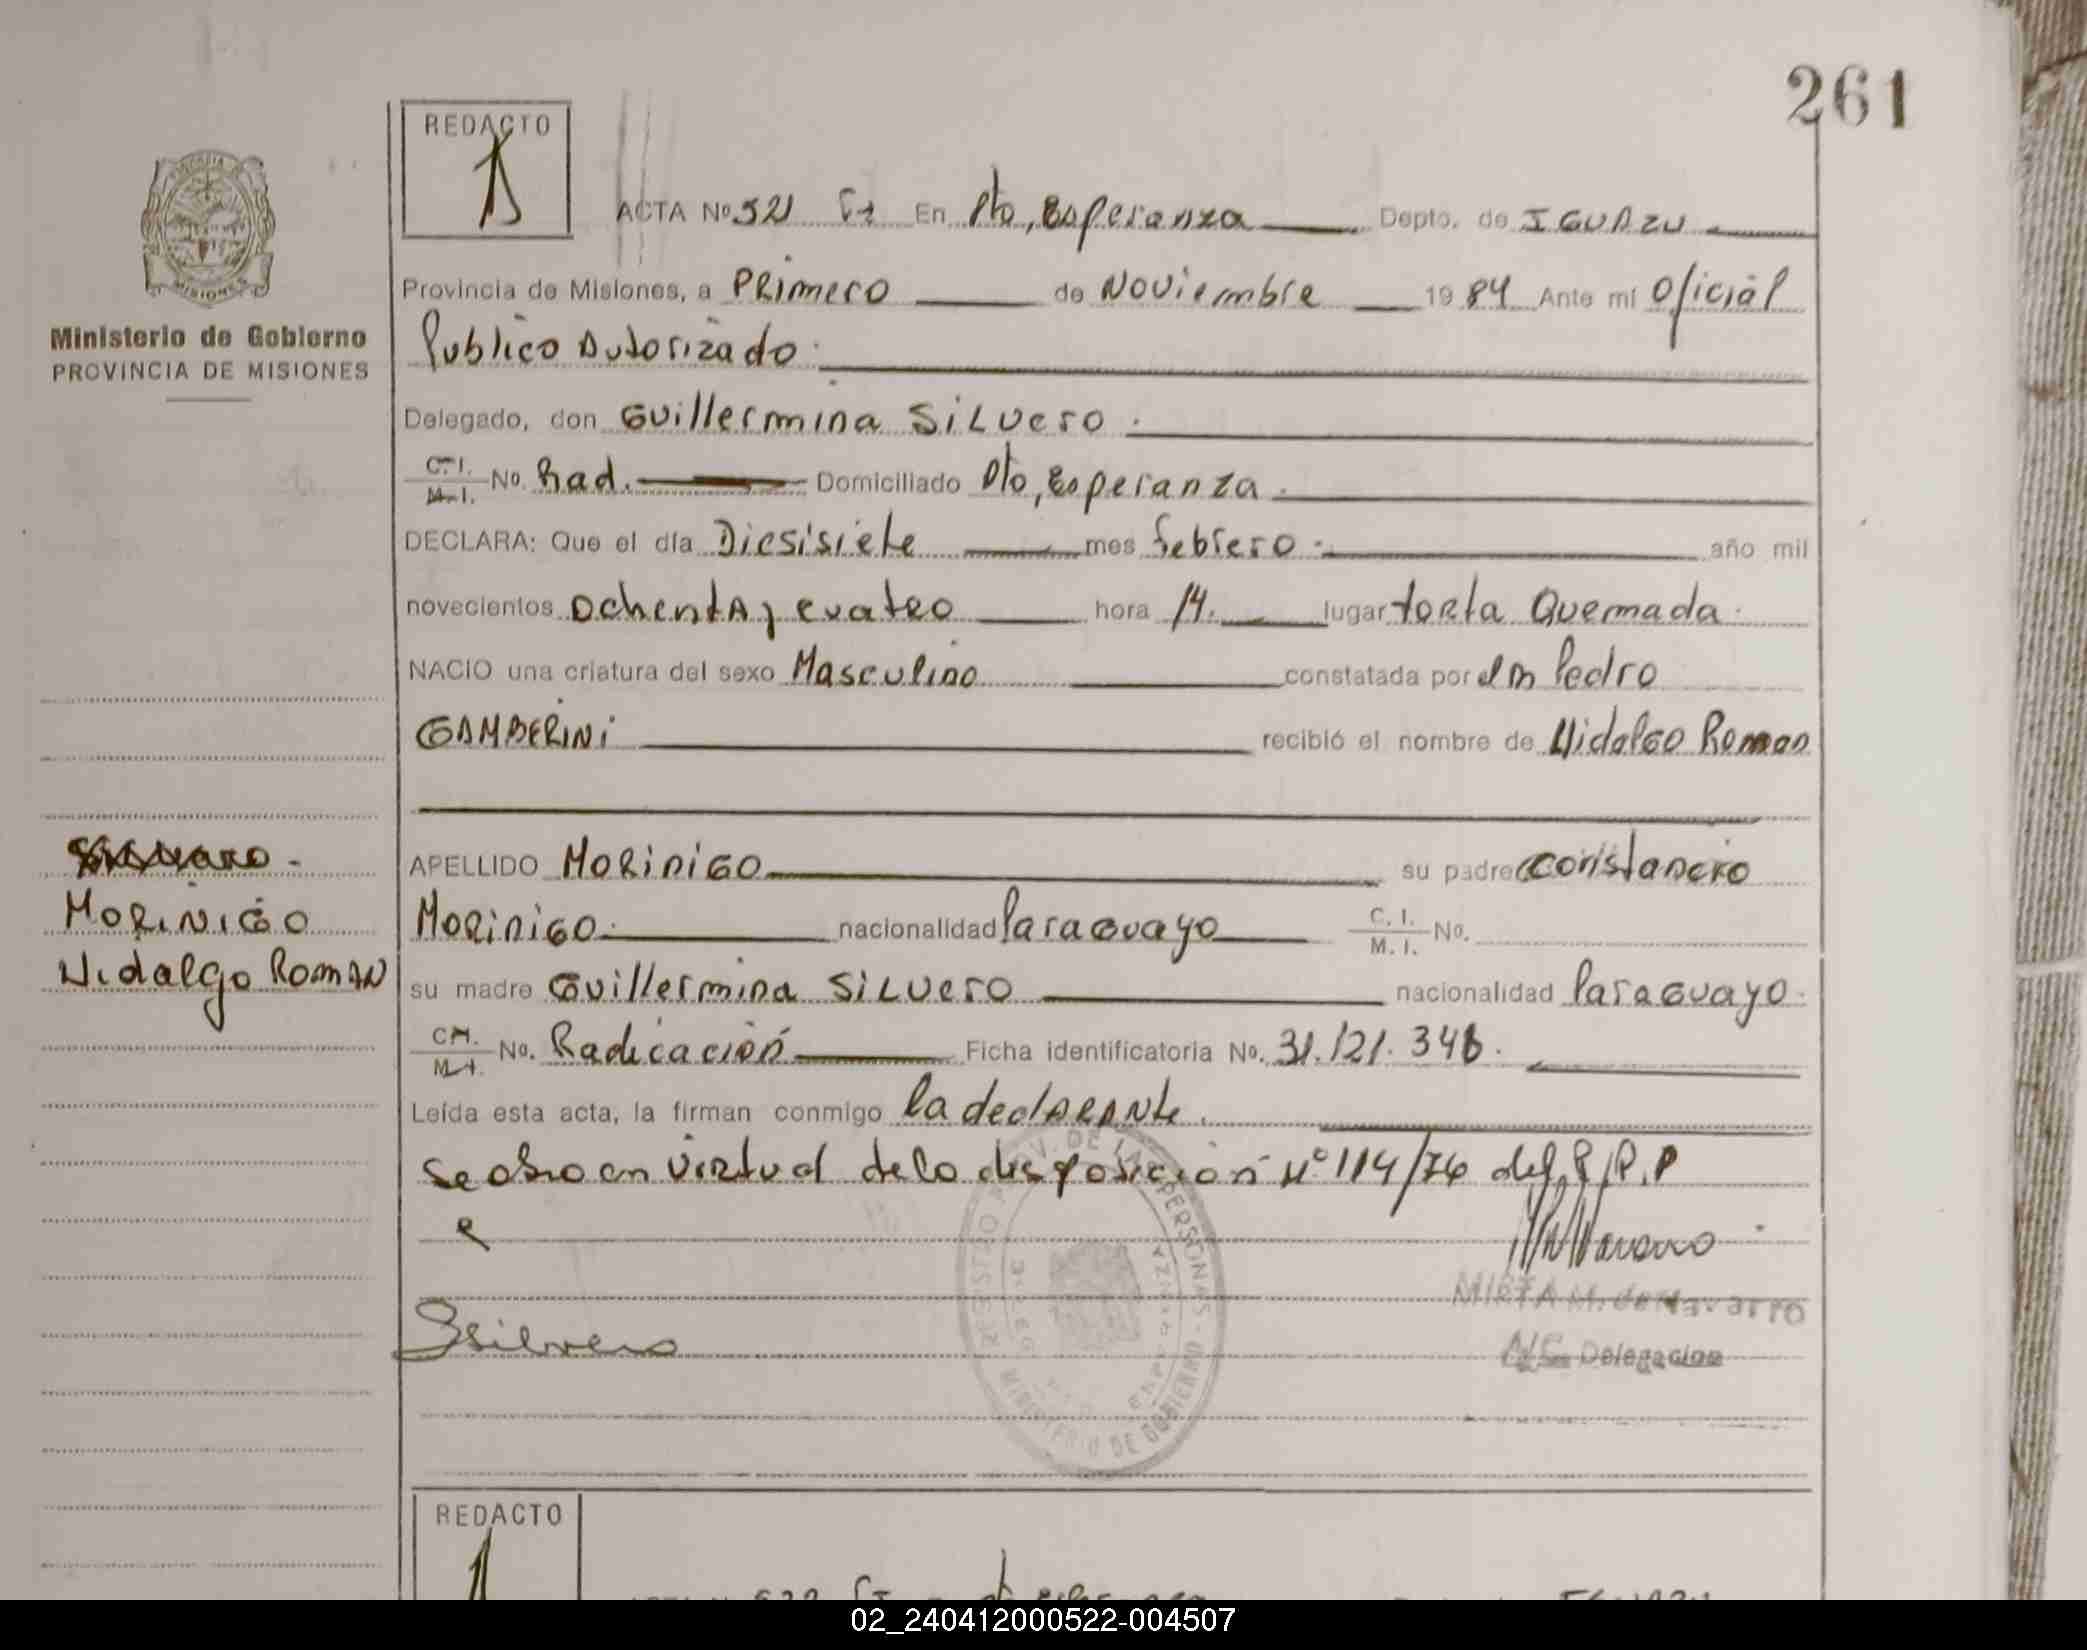 261
REDACTO
ACTA No 521 En Pto, Esperanza Depto. de IGUAZU
Provincia de Misiones, a PRimero de Noviembre 19 84 Ante mí Oficial
Publico Autorizado
Ministerio de Gobierno
PROVINCIA DE MISIONES
Delegado, don Guillermina SiLvero
C.I. M.I. No. Rad. Domiciliado Pto, Esperanza
DECLARA: Que el día Diesisiete mes febrero año mil
novecientos ochenta y cuatro hora 14. lugar torta Quemada
NACIO una criatura del sexo Masculino constatada por Pedro
GAMBERINi recibió el nombre de Hidalgo Roman
APELLIDO MORiniGO su padre Constancio
MORiniGO nacionalidad Paraguayo C. I. M. I. No.
MORINIGO
Hidalgo ROMAN
su madre Guillermina SiLvero nacionalidad Paraguayo
No. Radicación Ficha identificatoria No. 31.121.346.
Leída esta acta, la firman conmigo la declARANte.
se labro en virtud de la disposición Nº 114/76 del R.P.P
REGISTRO PROV. DE LAS PERSONAS - MINISTERIO DE GOBIERNO
MIRTA M. de Navarro
Delegacion
GSilvero
REDACTO
02_240412000522-004507